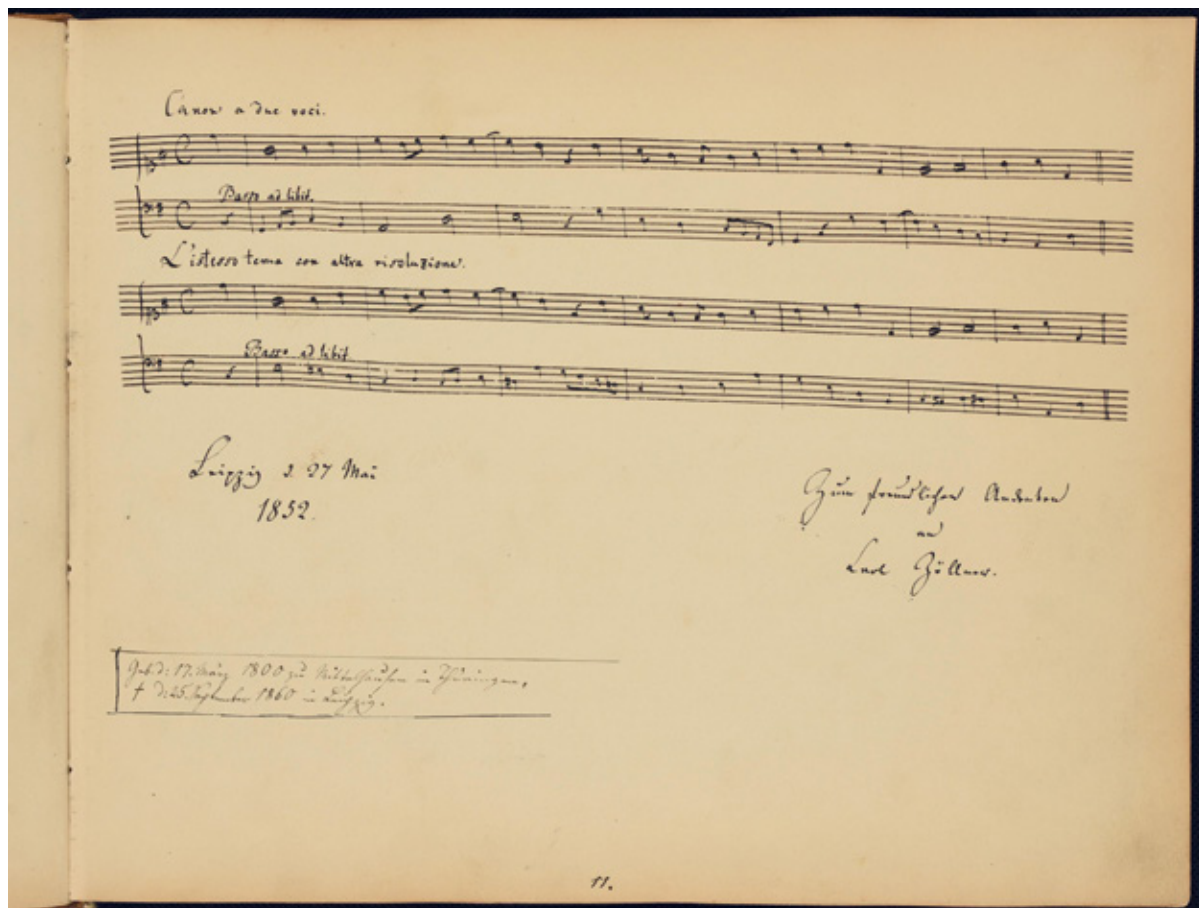 Canon a due voci.
Basso ad libit.
L'istesso tema con altra risoluzione.
Basso ad libit.
Leipzig d. 27 Mai
1852.
Zum freundlichen Andenken
an
Carl Zöllner.
Geb. d: 17. März 1800 zu Mittelhausen in Thüringen,
† d: 25. September 1860 in Leipzig.
11.